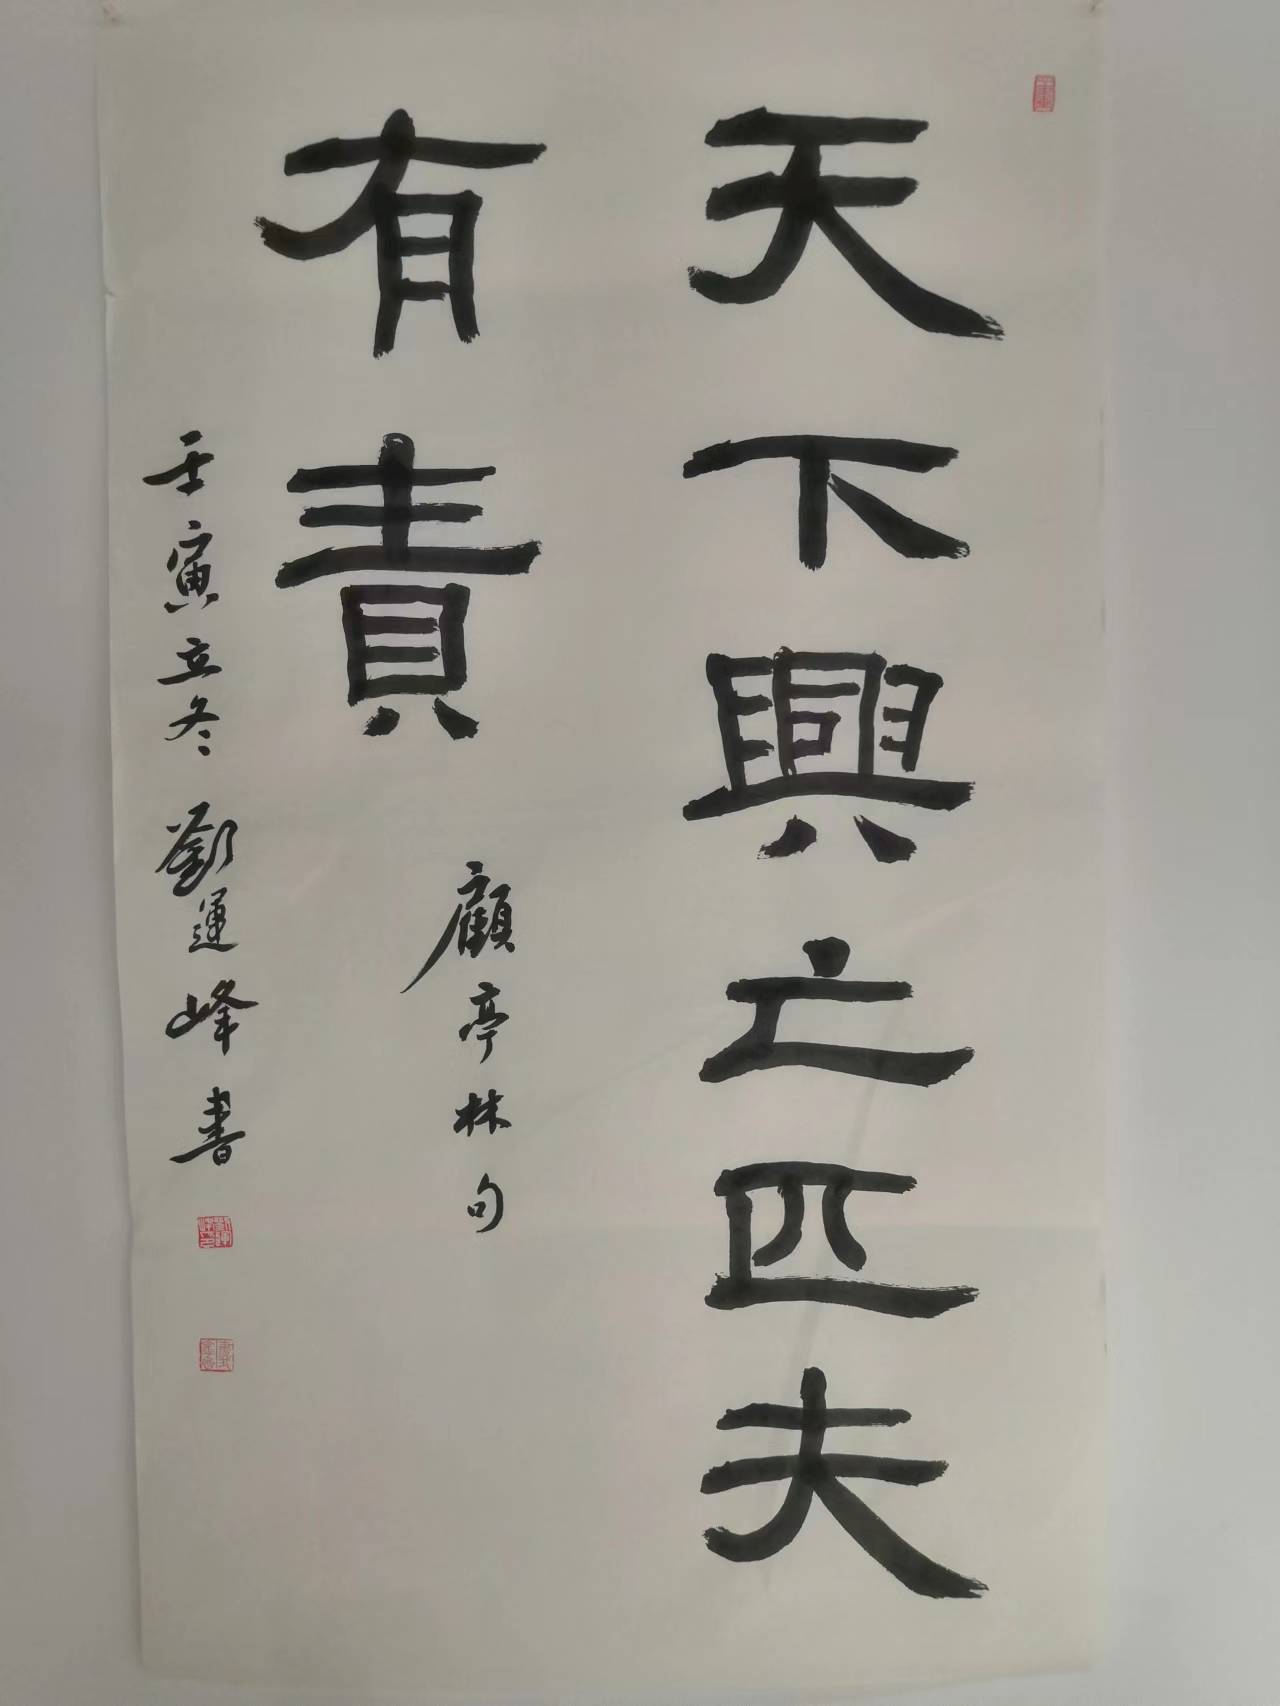 天下興亡匹夫
有責
顧亭林句
壬寅立冬劉運峰書